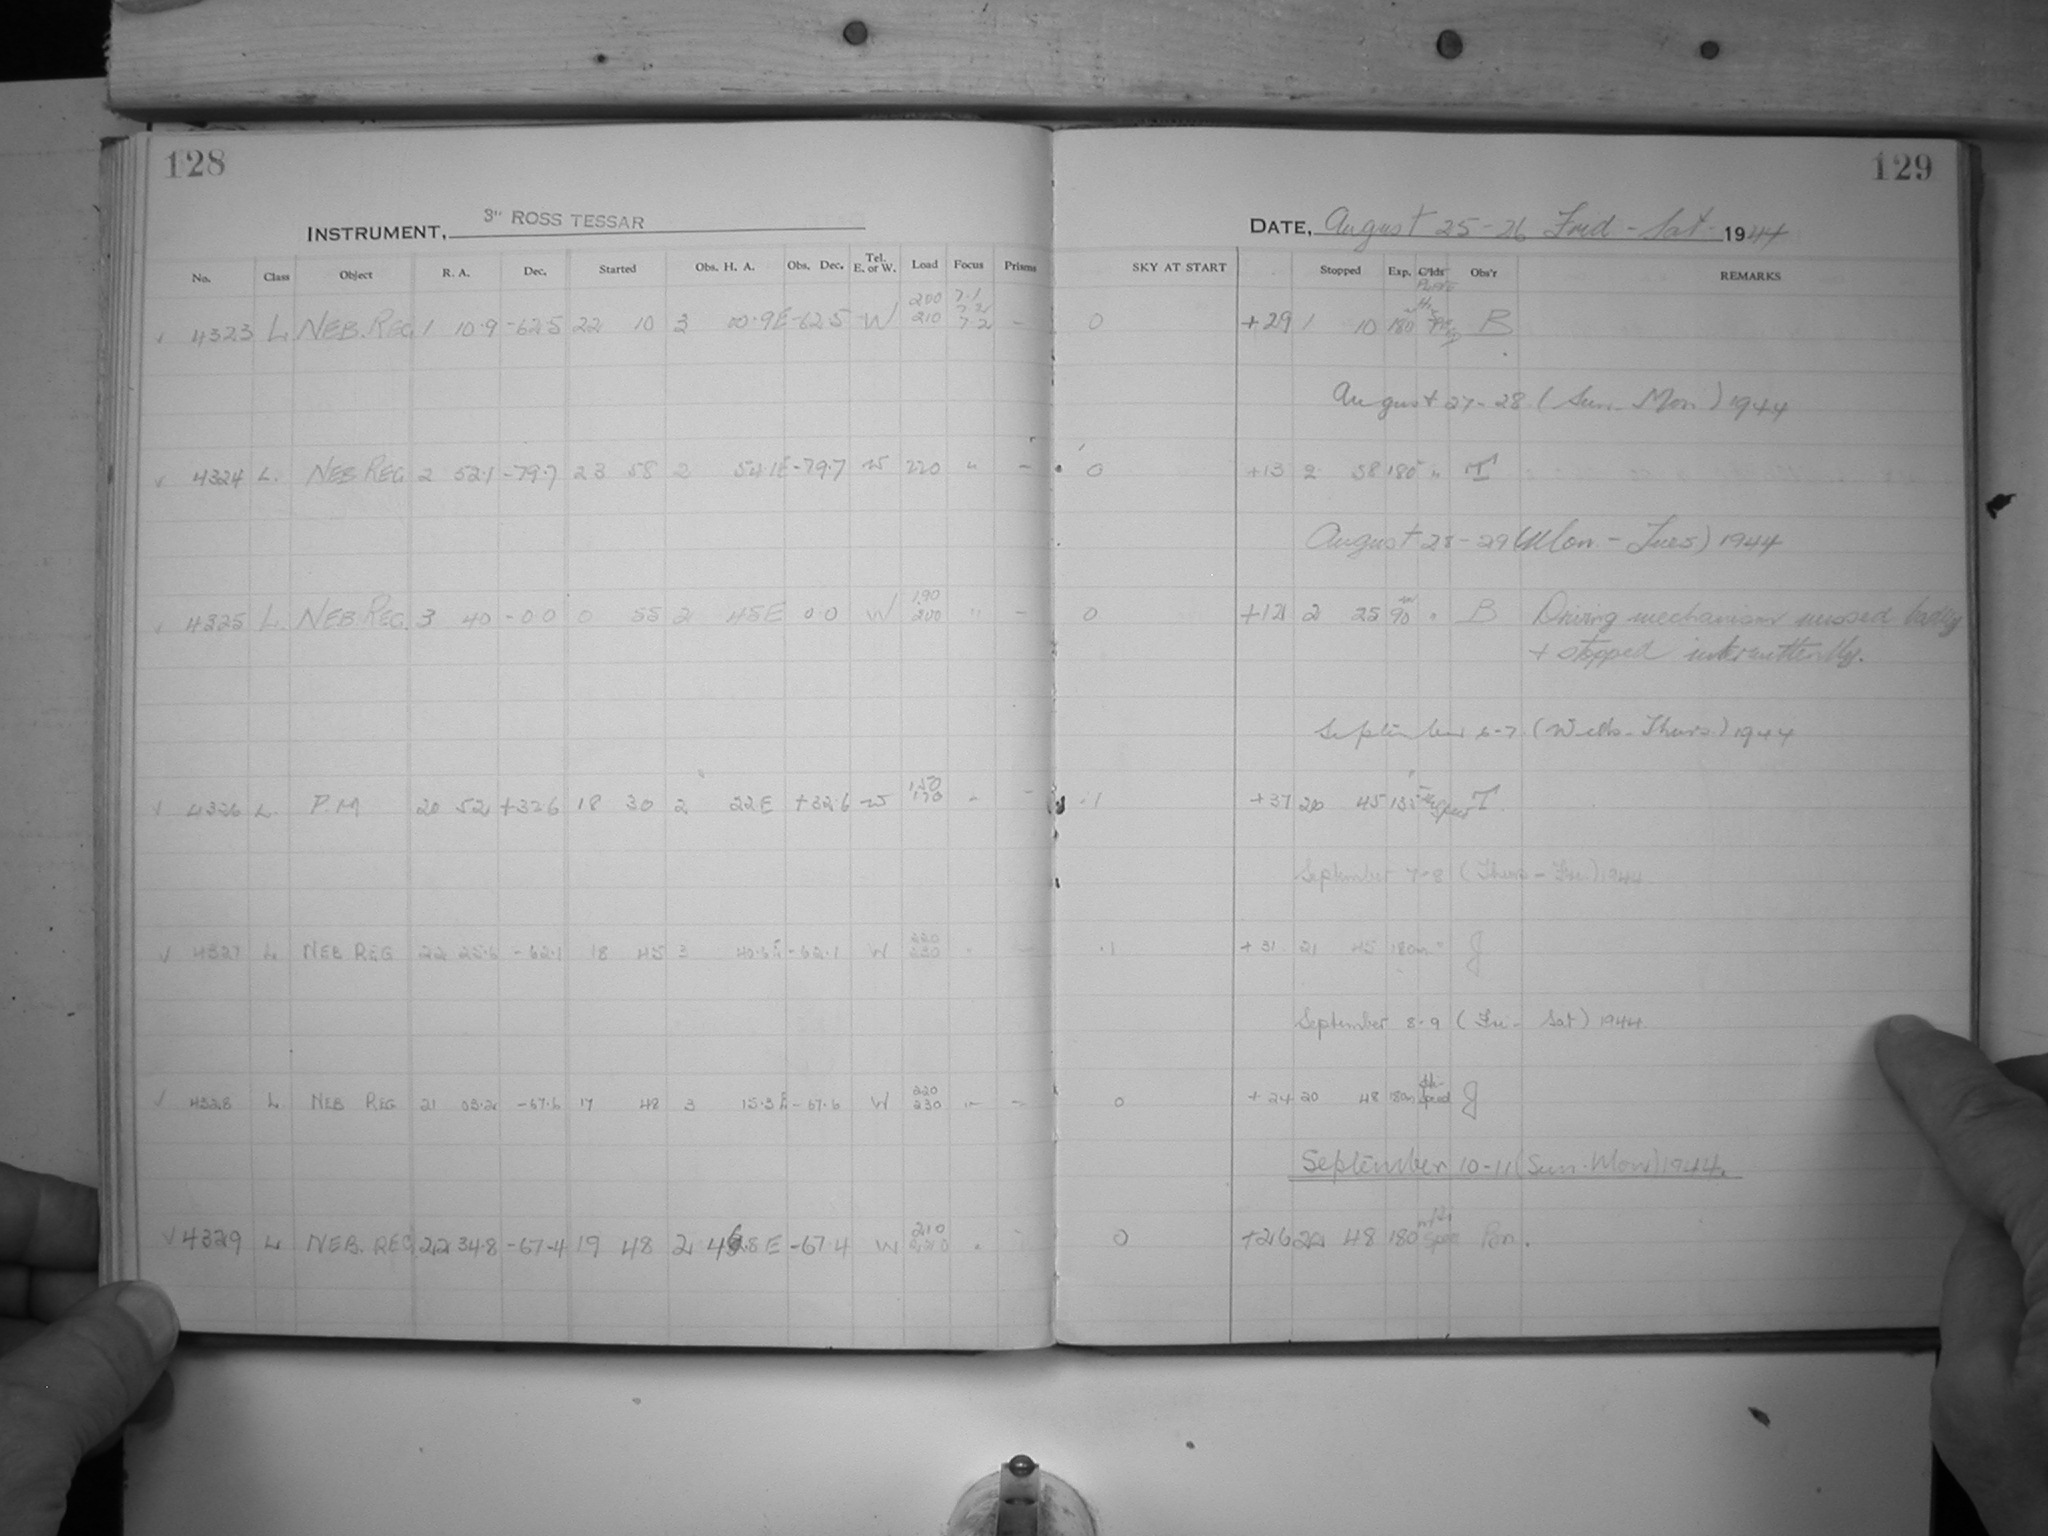 128
INSTRUMENT, 3" ROSS TESSAR
No. Class Object R. A. Dec. Started Obs. H. A. Obs. Dec. Tel. E. or W. Load Focus Prisms
4323 L NEB. REG. 1 10.9 -62.5 22 10 3 00.9E -62.5 W 200 210 7.1 7.2 7.2 -
4324 L. NEB REG 2 52.1 -79.7 23 58 2 54.1E -79.7 W 220 " -
4325 L. NEB REG. 3 40 -00 0 55 2 45E 00 W 190 200 " -
4326 L. P.M 20 52 +32.6 18 30 2 22E +32.6 W 150 170 " -
4327 L NEB REG 22 25.6 -62.1 18 45 3 40.6E -62.1 W 220 230 " -
4328 L NEB REG 21 03.2 -67.6 17 48 3 15.3E -67.6 W 220 230 " -
4329 L NEB. REG 22 34.8 -67.4 19 48 2 46.8E -67.4 W 210 220 " -
129
DATE, August 25-26 Frid - Sat - 1944
SKY AT START Stopped Exp. C'lds Plate Obs'r REMARKS
0 +29 1 10 180 B
August 27-28 (Sun - Mon) 1944
0 +13 2 58 180 " T
August 28-29 (Mon. - Tues) 1944
0 +12 2 25 90 " B Driving mechanism missed badly
+ stopped intermittently.
September 6-7 (Weds - Thurs.) 1944
.1 +37 20 45 135 Speed T.
September 7-8 (Thurs - Fri) 1944
.1 +31 21 45 180m " J
September 8-9 (Fri - Sat) 1944
0 +24 20 48 180m Speed J
September 10-11 (Sun - Mon) 1944.
0 +26 22 48 180 m Speed